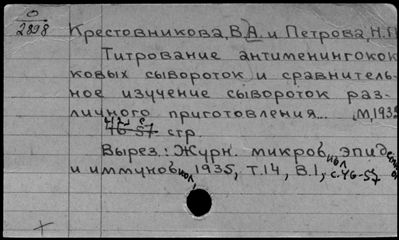 0
2898
Крестовникова, В.А. и Петрова, Н.П
Титрование антименингокок
ковых сывороток и сравнитель-
ное изучение сывороток раз-
личного приготовления... М, 1935
46-57 стр.
Вырез: Журн. микробиол, эпидем
и иммунобиол, 1935, т.14, В.1, с.46-57